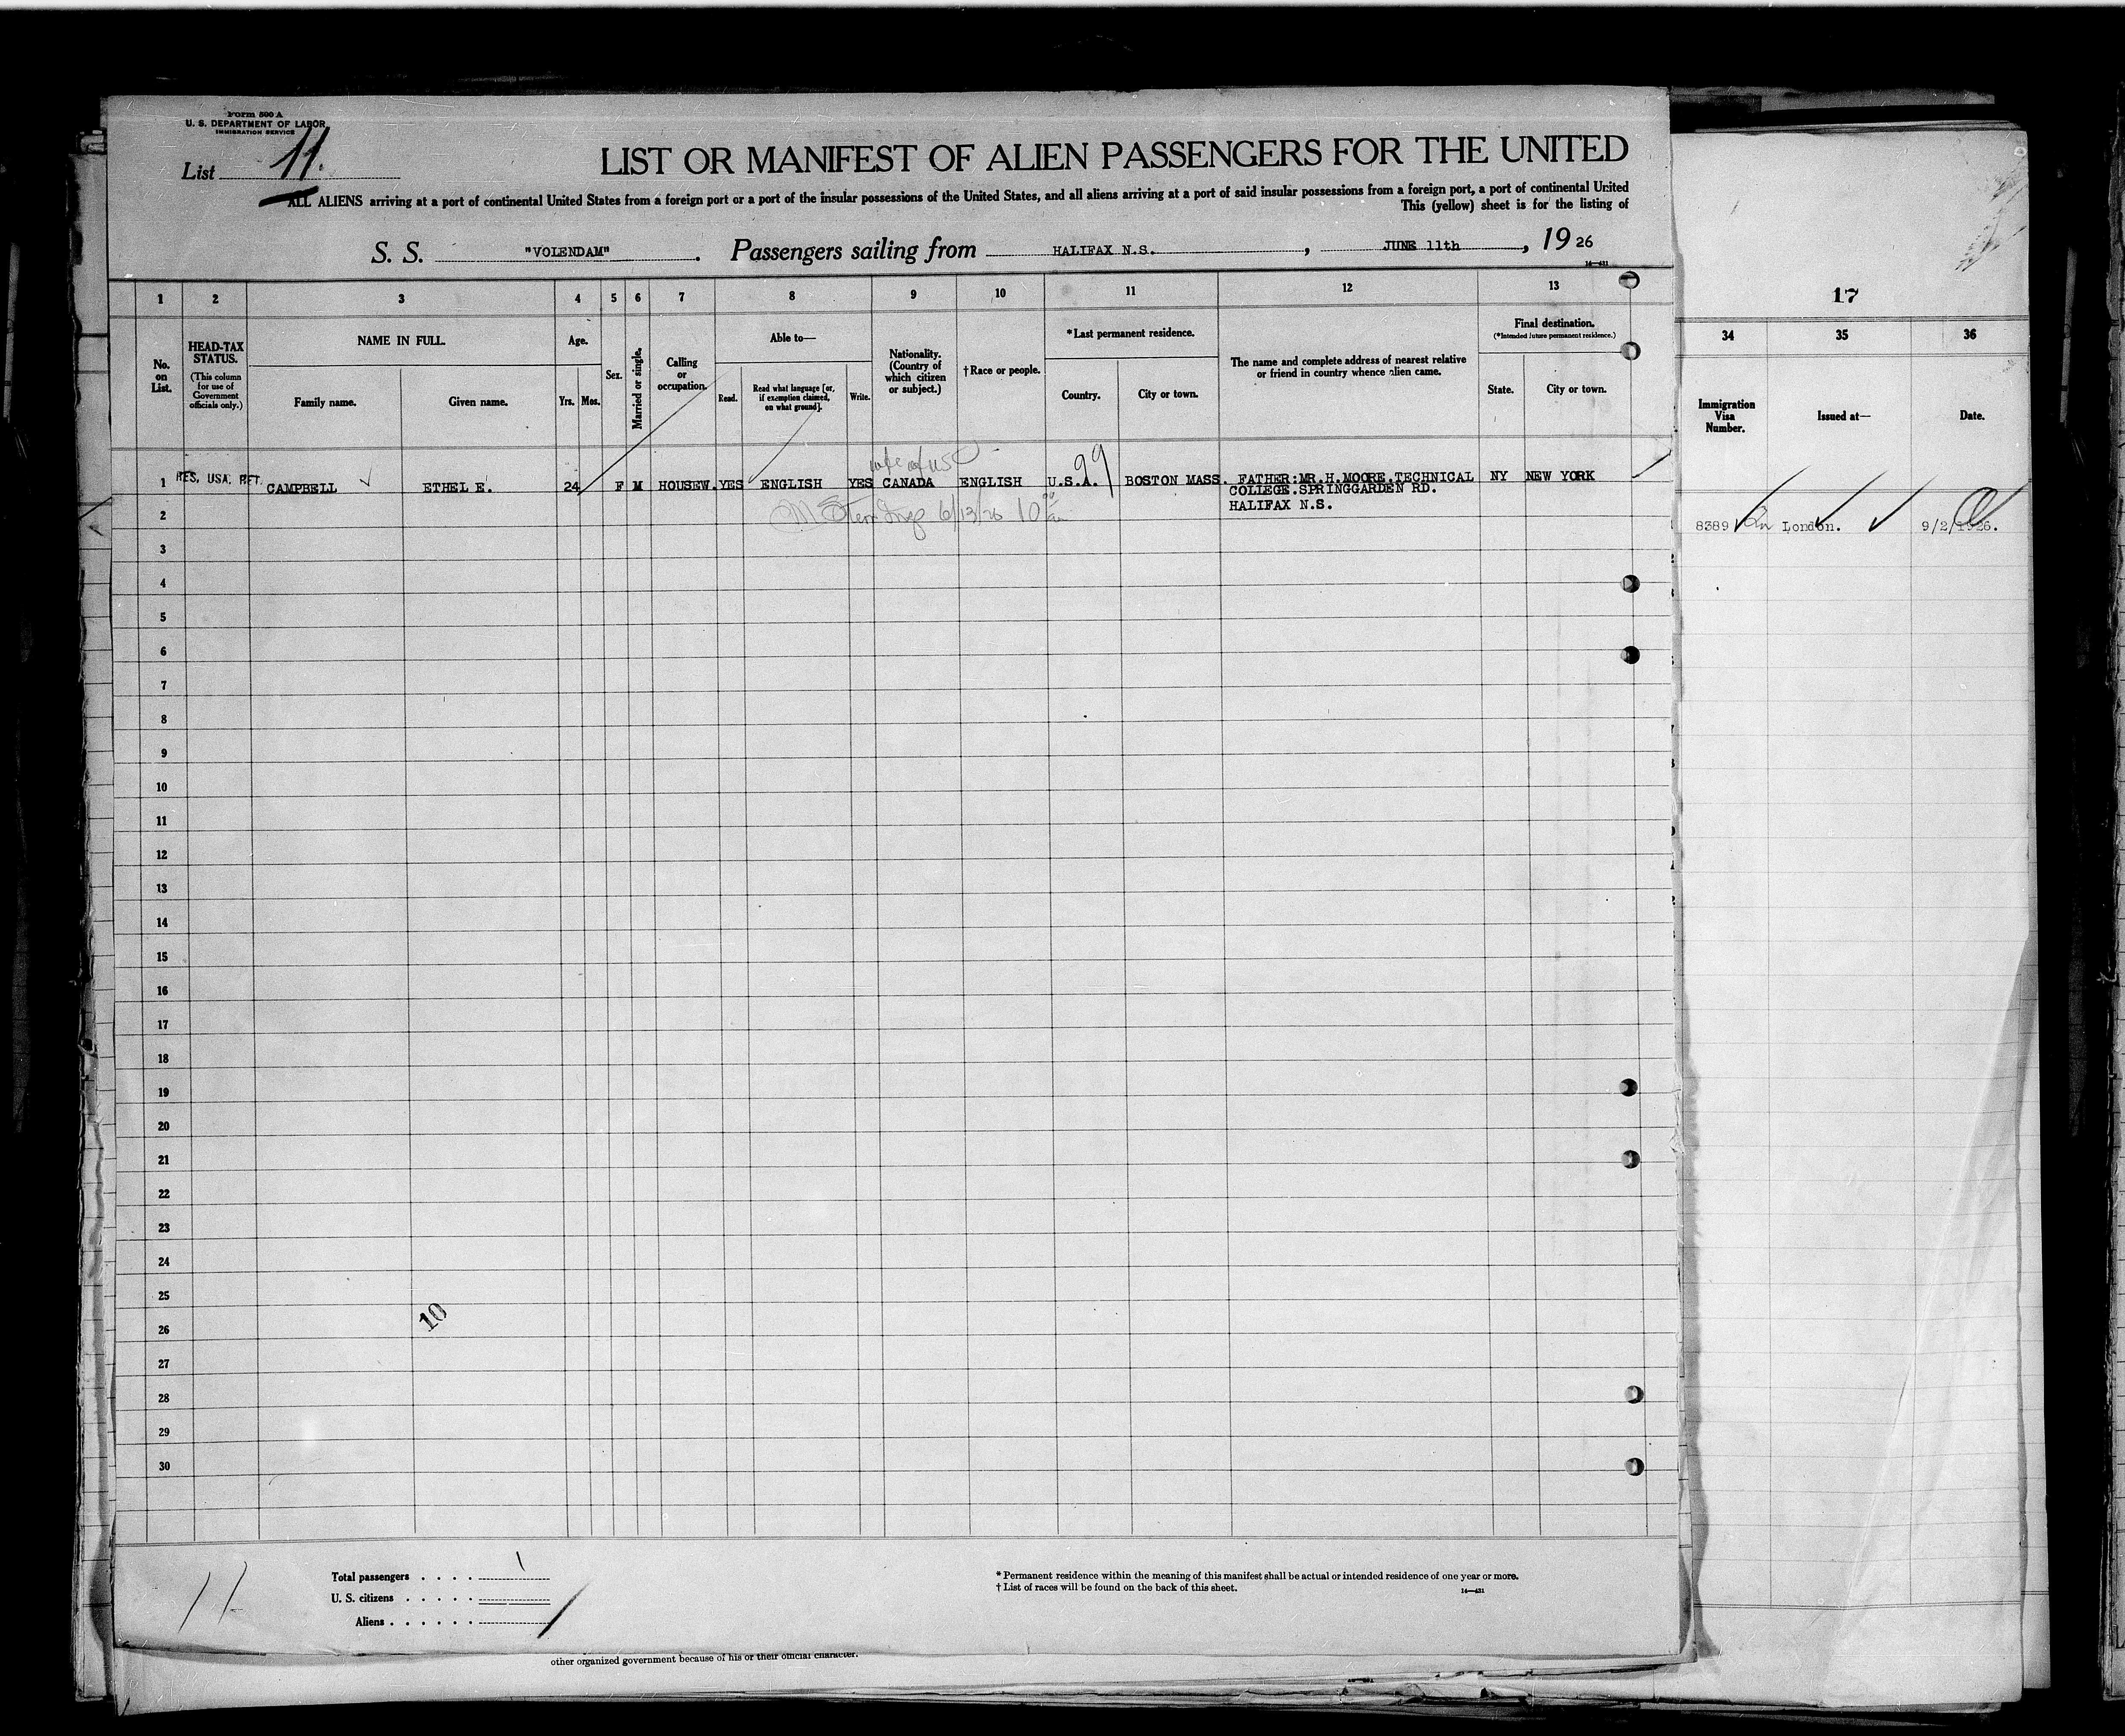 Form 500 A
U. S. DEPARTMENT OF LABOR
IMMIGRATION SERVICE
List 11.
LIST OR MANIFEST OF ALIEN PASSENGERS FOR THE UNITED
ALL ALIENS arriving at a port of continental United States from a foreign port or a port of the insular possessions of the United States, and all aliens arriving at a port of said insular possessions from a foreign port, a port of continental United
This (yellow) sheet is for the listing of
S. S. "VOLENDAM". Passengers sailing from HALIFAX N.S., JUNE 11th, 1926
14—431
1 2 3 4 5 6 7 8 9 10 11 12 13
No. on List.
HEAD-TAX STATUS.
(This column for use of Government officials only.)
NAME IN FULL.
Family name. Given name.
Age.
Yrs. Mos.
Sex.
Married or single.
Calling or occupation.
Able to—
Read. Read what language [or, if exemption claimed, on what ground]. Write.
Nationality. (Country of which citizen or subject.)
†Race or people.
*Last permanent residence.
Country. City or town.
The name and complete address of nearest relative or friend in country whence alien came.
Final destination.
(*Intended future permanent residence.)
State. City or town.
wife of USC
99
1 RES. USA. RET. CAMPBELL ETHEL E. 24 F M HOUSEW. YES ENGLISH YES CANADA ENGLISH U.S.A. BOSTON MASS. FATHER:MR.H.MOORE.TECHNICAL NY NEW YORK
COLLEGE.SPRINGGARDEN RD.
2 6/13/26 10 HALIFAX N.S.
3
4
5
6
7
8
9
10
11
12
13
14
15
16
17
18
19
20
21
22
23
24
25
26
27
28
29
30
10
11
Total passengers . . . . 1
U. S. citizens . . . . .
Aliens . . . . . .
* Permanent residence within the meaning of this manifest shall be actual or intended residence of one year or more.
† List of races will be found on the back of this sheet.
14—431
other organized government because of his or their official character.
17
34 35 36
Immigration Visa Number.
Issued at—
Date.
8389 London. 9/2/1926.